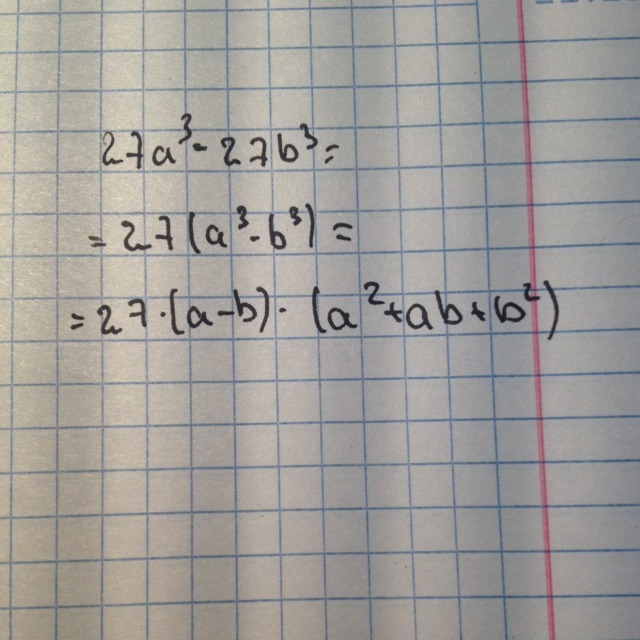 27a³ - 27b³ =
= 27(a³ - b³) =
= 27·(a-b)·(a²+ab+b²)